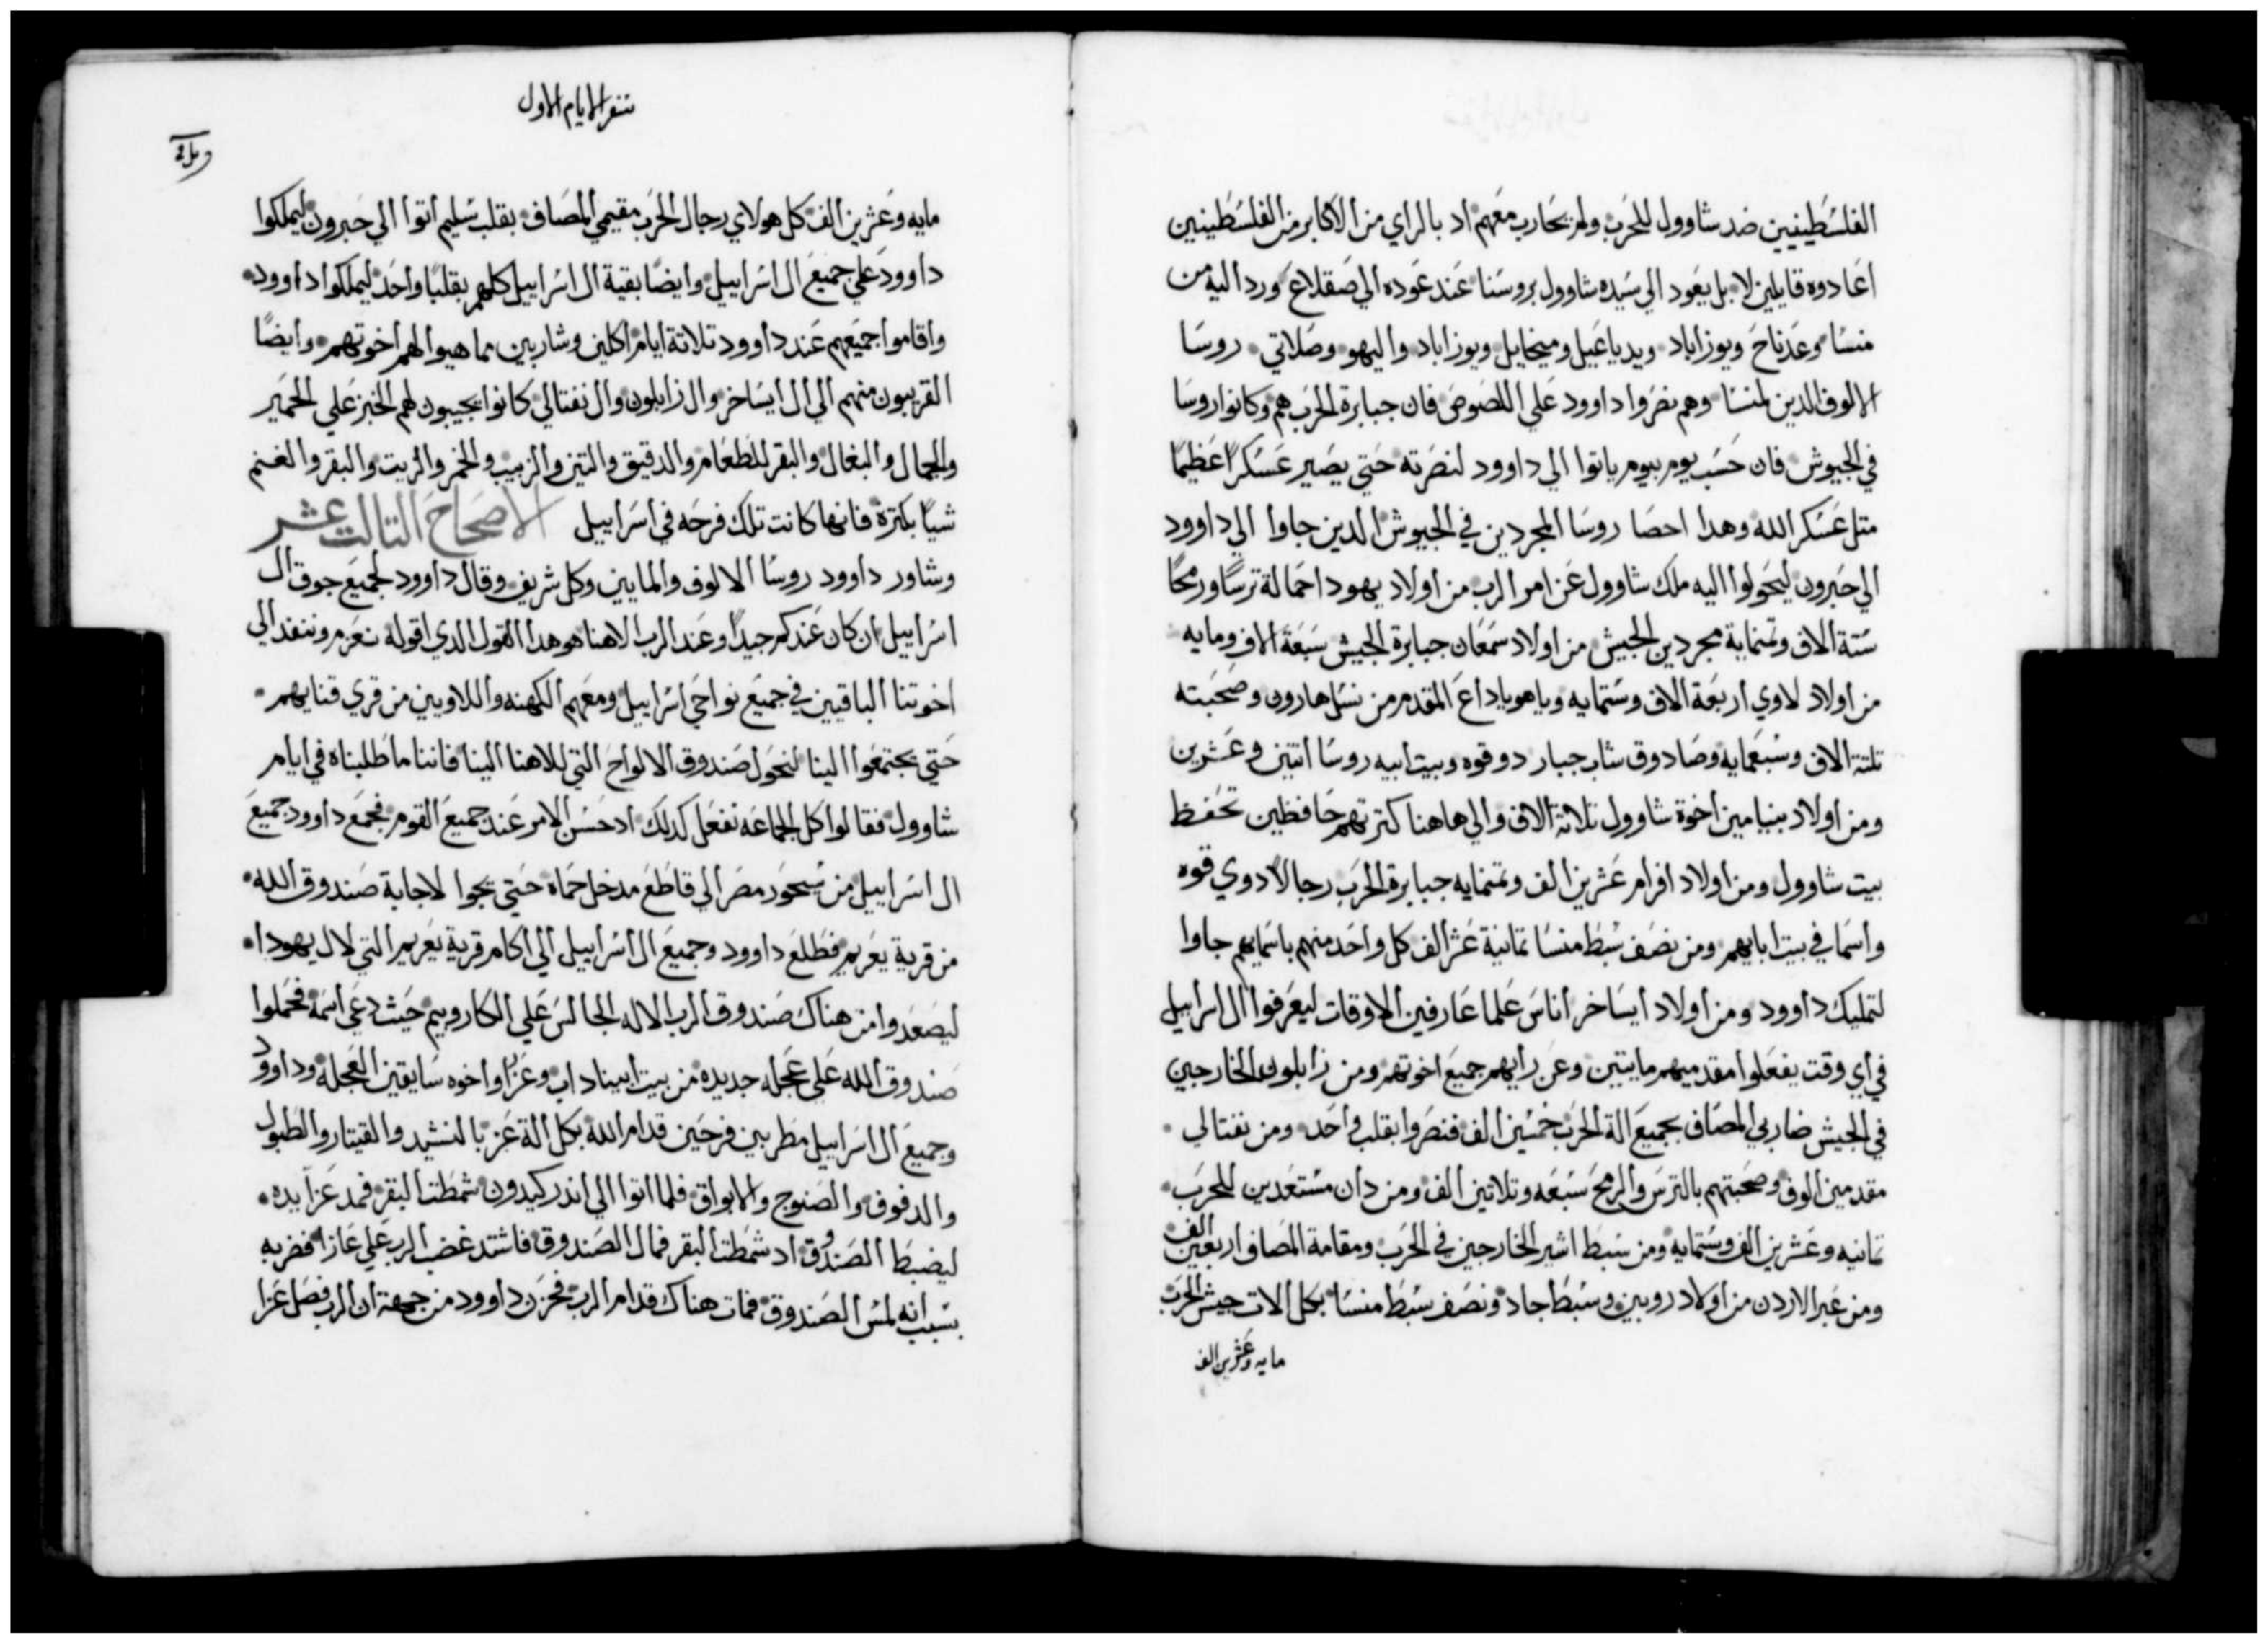 الفلسطينيين ضد شاوول للحرب ولم يحارب معهم اد بالراي من الاكابر من الفلسطينيين
اعادوه قايلين لا بل يعود الي سيده شاوول بروسنا عند عوده الي صقلاع ورد اليه من
منسا وعدناح ويوزاباد ويدياعيل وميخايل ويوزاباد واليهو وصلاتي روسا
الالوف الدين لمنسا وهم نصروا داوود علي اللصوص فان جبابرة الحرب هم وكانوا روسا
في الجيوش فان حسب يوم بيوم ياتوا الي داوود لنصرته حتي يصير عسكرا عظيما
متل عسكر الله وهدا احصا روسا المجردين في الجيوش الدين جاوا الي داوود
الي حبرون ليحولوا اليه ملك شاوول عن امر الرب من اولاد يهودا حمالة ترسا ورمحا
ستة الاف وتمنماية مجردين الجيش من اولاد سمعان جبابرة الجيش سبعة الاف ومايه
من اولاد لاوي اربعة الاف وستمايه وياهوياداع المقدم من نسل هارون وصحبته
تلتة الاف وسبعمايه وصادوق شاب جبار دو قوه وبيت ابيه روسا اتنين وعشرين
ومن اولاد بنيامين اخوة شاوول تلاتة الاف والي هاهنا كترتهم حافظين تحفظ
بيت شاوول ومن اولاد افرام عشرين الف وتمنمايه جبابرة الحرب رجالا دوي قوه
واسما في بيت ابايهم ومن نصف سبط منسا تمانية عشر الف كل واحد منهم باسمايهم جاوا
لتمليك داوود ومن اولاد ايساخر اناس علما عارفين الاوقات ليعرفوا ال اسراييل
في اي وقت يفعلوا مقدميهم مايتين وعن رايهم جميع اخوتهم ومن زابلون الخارجين
في الجيش ضاربي المصاف بجميع الة الحرب خمسين الف فنصروا بقلب واحد ومن نفتالي
مقدمين الوف وصحبتهم بالترس والرمح سبعه وتلاتين الف ومن دان مستعدين للحرب
تمانيه وعشرين الف وستمايه ومن سبط اشير الخارجين في الحرب ومقامة المصاف اربعين الف
ومن عبر الاردن من اولاد روبين وسبط جاد ونصف سبط منسا بكل الات جيش الحرب
مايه وعشرين الف
سفر الايام الاول
مايه وعشرين الف كل هولاي رجال الحرب مقيمي المصاف بقلب سليم اتوا الي حبرون ليملكوا
داوود علي جميع ال اسراييل وايضا بقية ال اسراييل كلهم بقلبا واحد ليملكوا داوود
واقاموا جميعهم عند داوود تلاتة ايام اكلين وشاربين مما هيوا لهم اخوتهم وايضا
القريبون منهم الي ال ايساخر وال زابلون وال نفتالي كانوا يجيبون لهم الخبز علي الحمير
والجمال والبغال والبقر للطعام والدقيق والتين والزبيب والخمر والزيت والبقر والغنم
شيا بكترة فانها كانت تلك فرحه في اسراييل الاصحاح التالت عشر
وشاور داوود روسا الالوف والمايين وكل شريف وقال داوود لجميع جوق ال
اسراييل ان كان عندكم جيدا وعند الرب الاهنا هو هدا القول الدي اقوله نعزم وننفد الي
اخوتنا الباقيين في جميع نواحي اسراييل ومعهم الكهنه واللاويين من قري قنايهم
حتي يجتمعوا الينا لنحول صندوق الالواح التي للاهنا الينا فاننا ما طلبناه في ايام
شاوول فقالوا كل الجماعه نفعل كدلك اد حسن الامر عند جميع القوم فجمع داوود جميع
ال اسراييل من سحور مصر الي قاطع مدخل حماة حتي يجوا لاجابة صندوق الله
من قرية يعريم فطلع داوود وجميع ال اسراييل الي اكام قرية يعريم التي لال يهودا
ليصعدوا من هناك صندوق الرب الاله الجالس علي الكاروبيم حيث دعي اسمه فحملوا
صندوق الله علي عجله جديده من بيت ابيناداب وعزا واخوه سايقين العجله وداوود
وجميع ال اسراييل مطربين فرحين قدام الله بكل الة عز بالنشيد والقيتار والطبول
والدفوف والصنوج والابواق فلما اتوا الي اندر كيدون شمطت البقر فمد عزا يده
ليضبط الصندوق اد شمطت البقر فمال الصندوق فاشتد غضب الرب علي عازا فضربه
بسبب انه لمس الصندوق فمات هناك قدام الرب فحزن داوود من جهة ان الرب فصل عزا